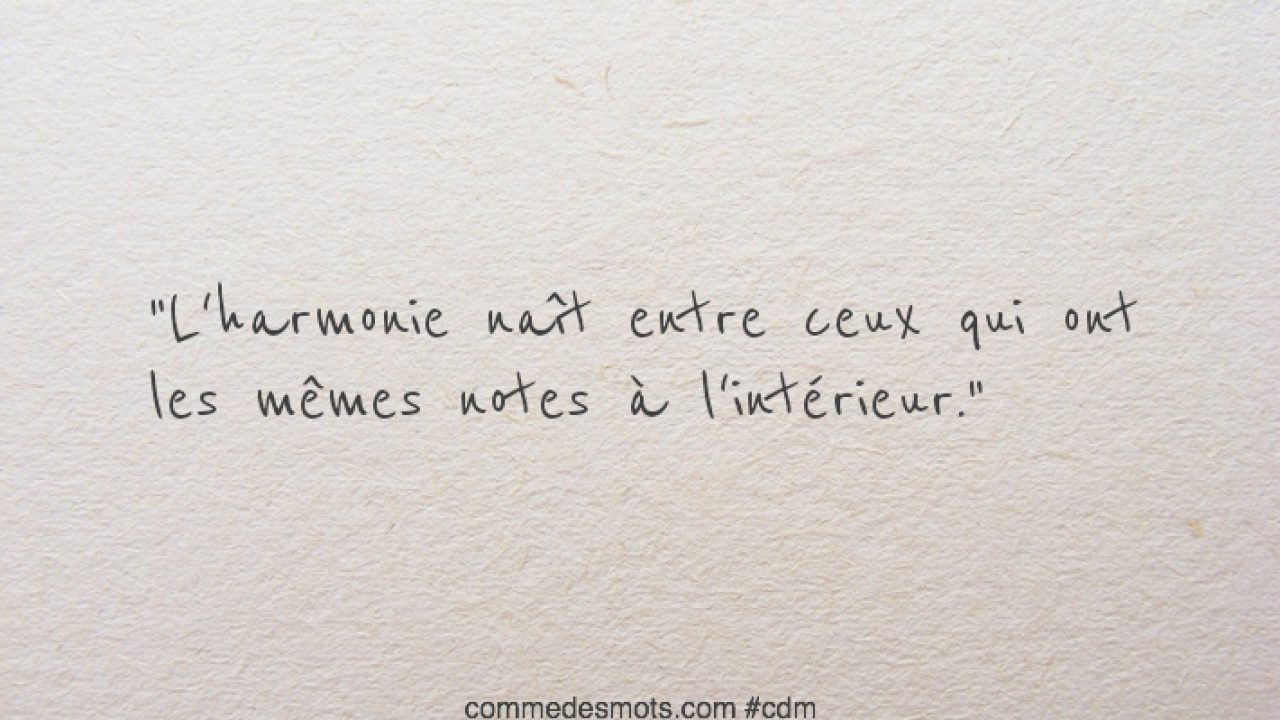 "L'harmonie naît entre ceux qui ont
les mêmes notes à l'intérieur."
commedesmots.com #cdm